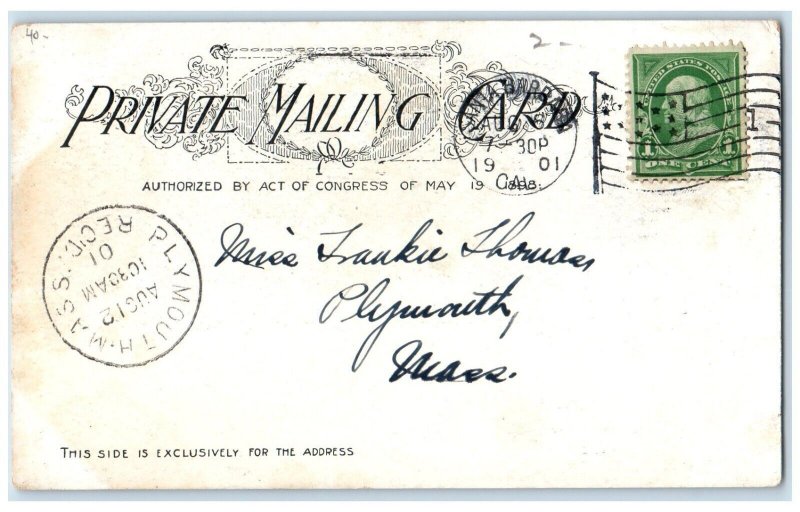 40-
2-
PRIVATE MAILING CARD
AUTHORIZED BY ACT OF CONGRESS OF MAY 19 1898.
SANTA BARBARA
7-30P
19 01
CAL.
1
ONE CENT
1 1
PLYMOUTH. MASS. REC'D.
AUG 12
1030AM
01
Miss Frankie Thomas,
Plymouth,
Mass.
THIS SIDE IS EXCLUSIVELY FOR THE ADDRESS